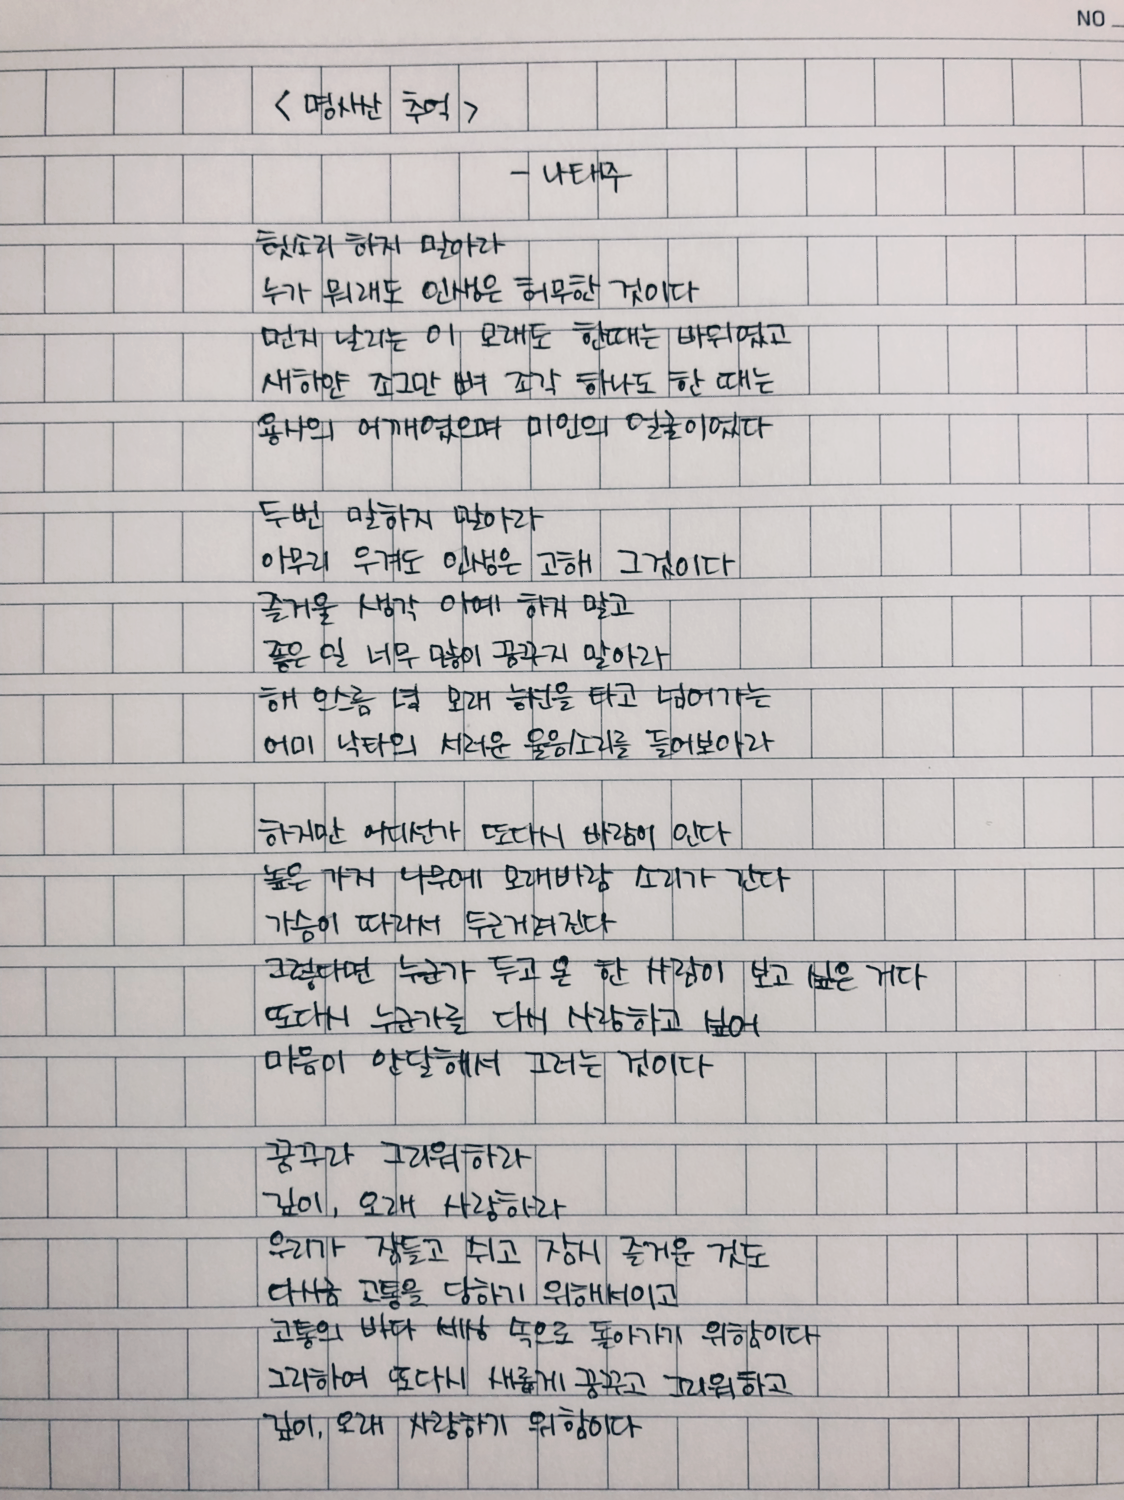 NO
< 명사산 추억 >
- 나태주
헛소리 하지 말아라
누가 뭐래도 인생은 허무한 것이다
먼지 날리는 이 모래도 한때는 바위였고
새하얀 조그만 뼈 조각 하나도 한 때는
용사의 어깨였으며 미인의 얼굴이었다
두번 말하지 말아라
아무리 우겨도 인생은 고해 그것이다
즐거울 생각 아예 하지 말고
좋은 일 너무 많이 꿈꾸지 말아라
해 으스름 녘 모래 능선을 타고 넘어가는
어미 낙타의 서러운 울음소리를 들어보아라
하지만 어디선가 또다시 바람이 인다
높은 가지 나무에 모래바람 소리가 간다
가슴이 따라서 두근거려진다
그렇다면 누군가 두고 온 한 사람이 보고 싶은 거다
또다시 누군가를 다시 사랑하고 싶어
마음이 안달해서 그러는 것이다
꿈꾸라 그리워하라
깊이, 오래 사랑하라
우리가 잠들고 쉬고 잠시 즐거운 것도
다시금 고통을 당하기 위해서이고
고통의 바다 세상 속으로 돌아가기 위함이다
그리하여 또다시 새롭게 꿈꾸고 그리워하고
깊이, 오래 사랑하기 위함이다